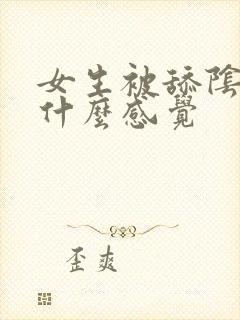 女生被舔陰
什麼感覺
歪爽